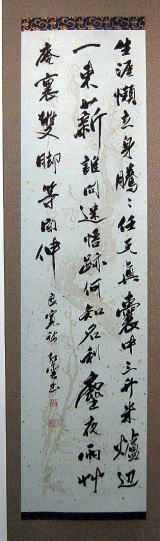 生涯懶立身騰〻任天真囊中三升米爐辺
一束薪誰問迷悟跡何知名利塵夜雨艸
庵裏雙脚等閑伸
良寛詩